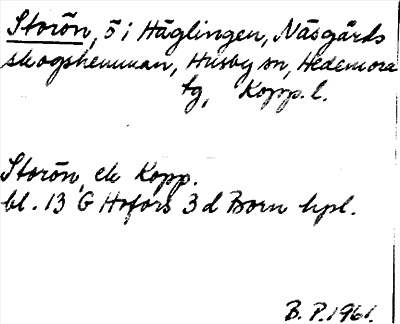 Storön, ö i Häglingen, Näsgårds
skogshemman, Husby sn, Hedemora
tg, Kopp. l.
Storön, ek Kopp.
bl. 13 G Hofors 3 d Born hpl.
B. P. 1961.